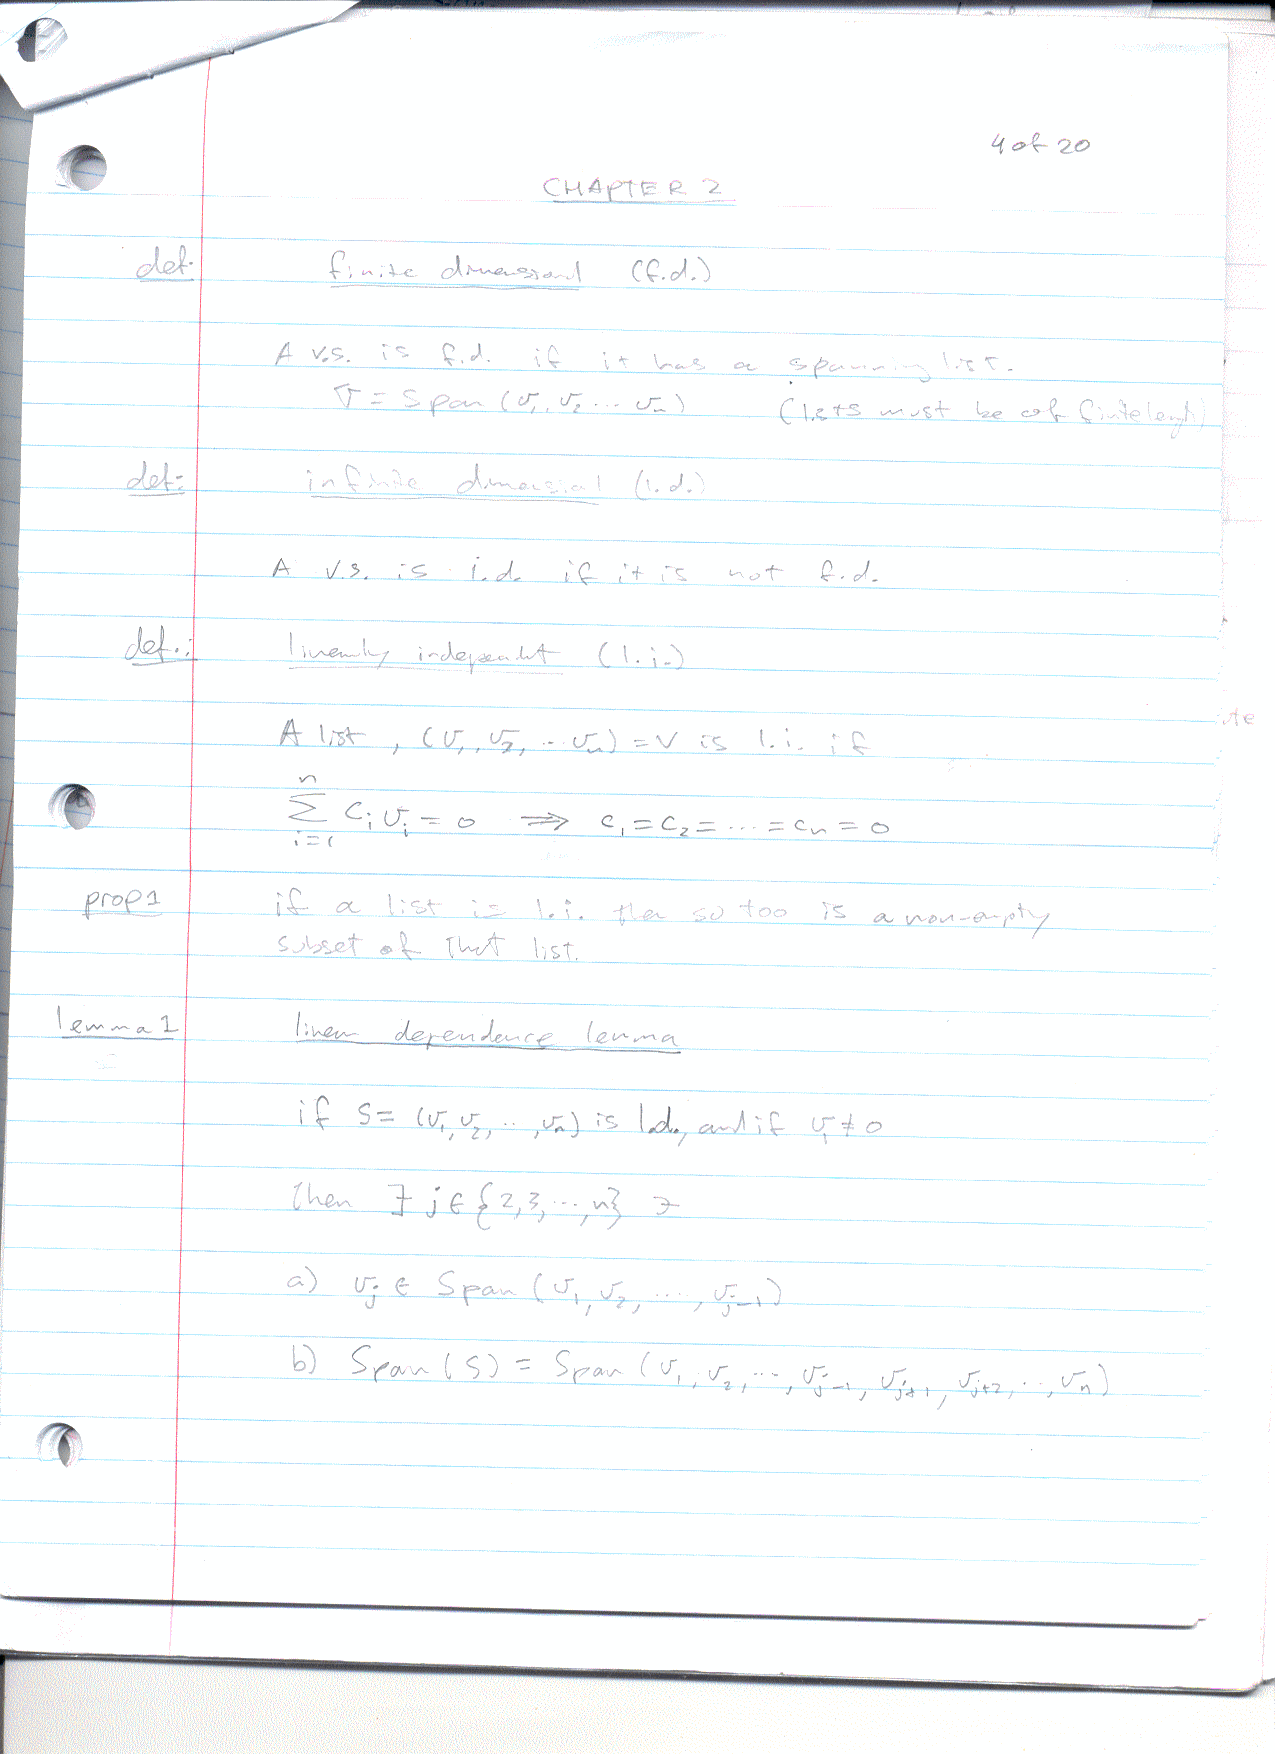 4 of 20
CHAPTER 2
def. finite dimensional (f.d.)
A v.s. is f.d. if it has a spanning list.
V = Span (v₁, v₂ ... vₙ) (lists must be of finite length)
def: infinite dimensional (i.d.)
A v.s. is i.d. if it is not f.d.
def.: linearly independent (l.i.)
A list, (v₁, v₂, ... vₙ) = V is l.i. if
n
∑ cᵢvᵢ = 0 ⟹ c₁ = c₂ = ... = cₙ = 0
i=1
prop 1 if a list is l.i. then so too is a non-empty
subset of that list.
lemma 1 linear dependence lemma
if S = (v₁, v₂, ..., vₙ) is l.d., and if v₁ ≠ 0
Then ∃ j ∈ {2, 3, ..., n} ∋
a) vⱼ ∈ Span (v₁, v₂, ..., vⱼ₋₁)
b) Span (S) = Span (v₁, v₂, ..., vⱼ₋₁, vⱼ₊₁, vⱼ₊₂, .., vₙ)